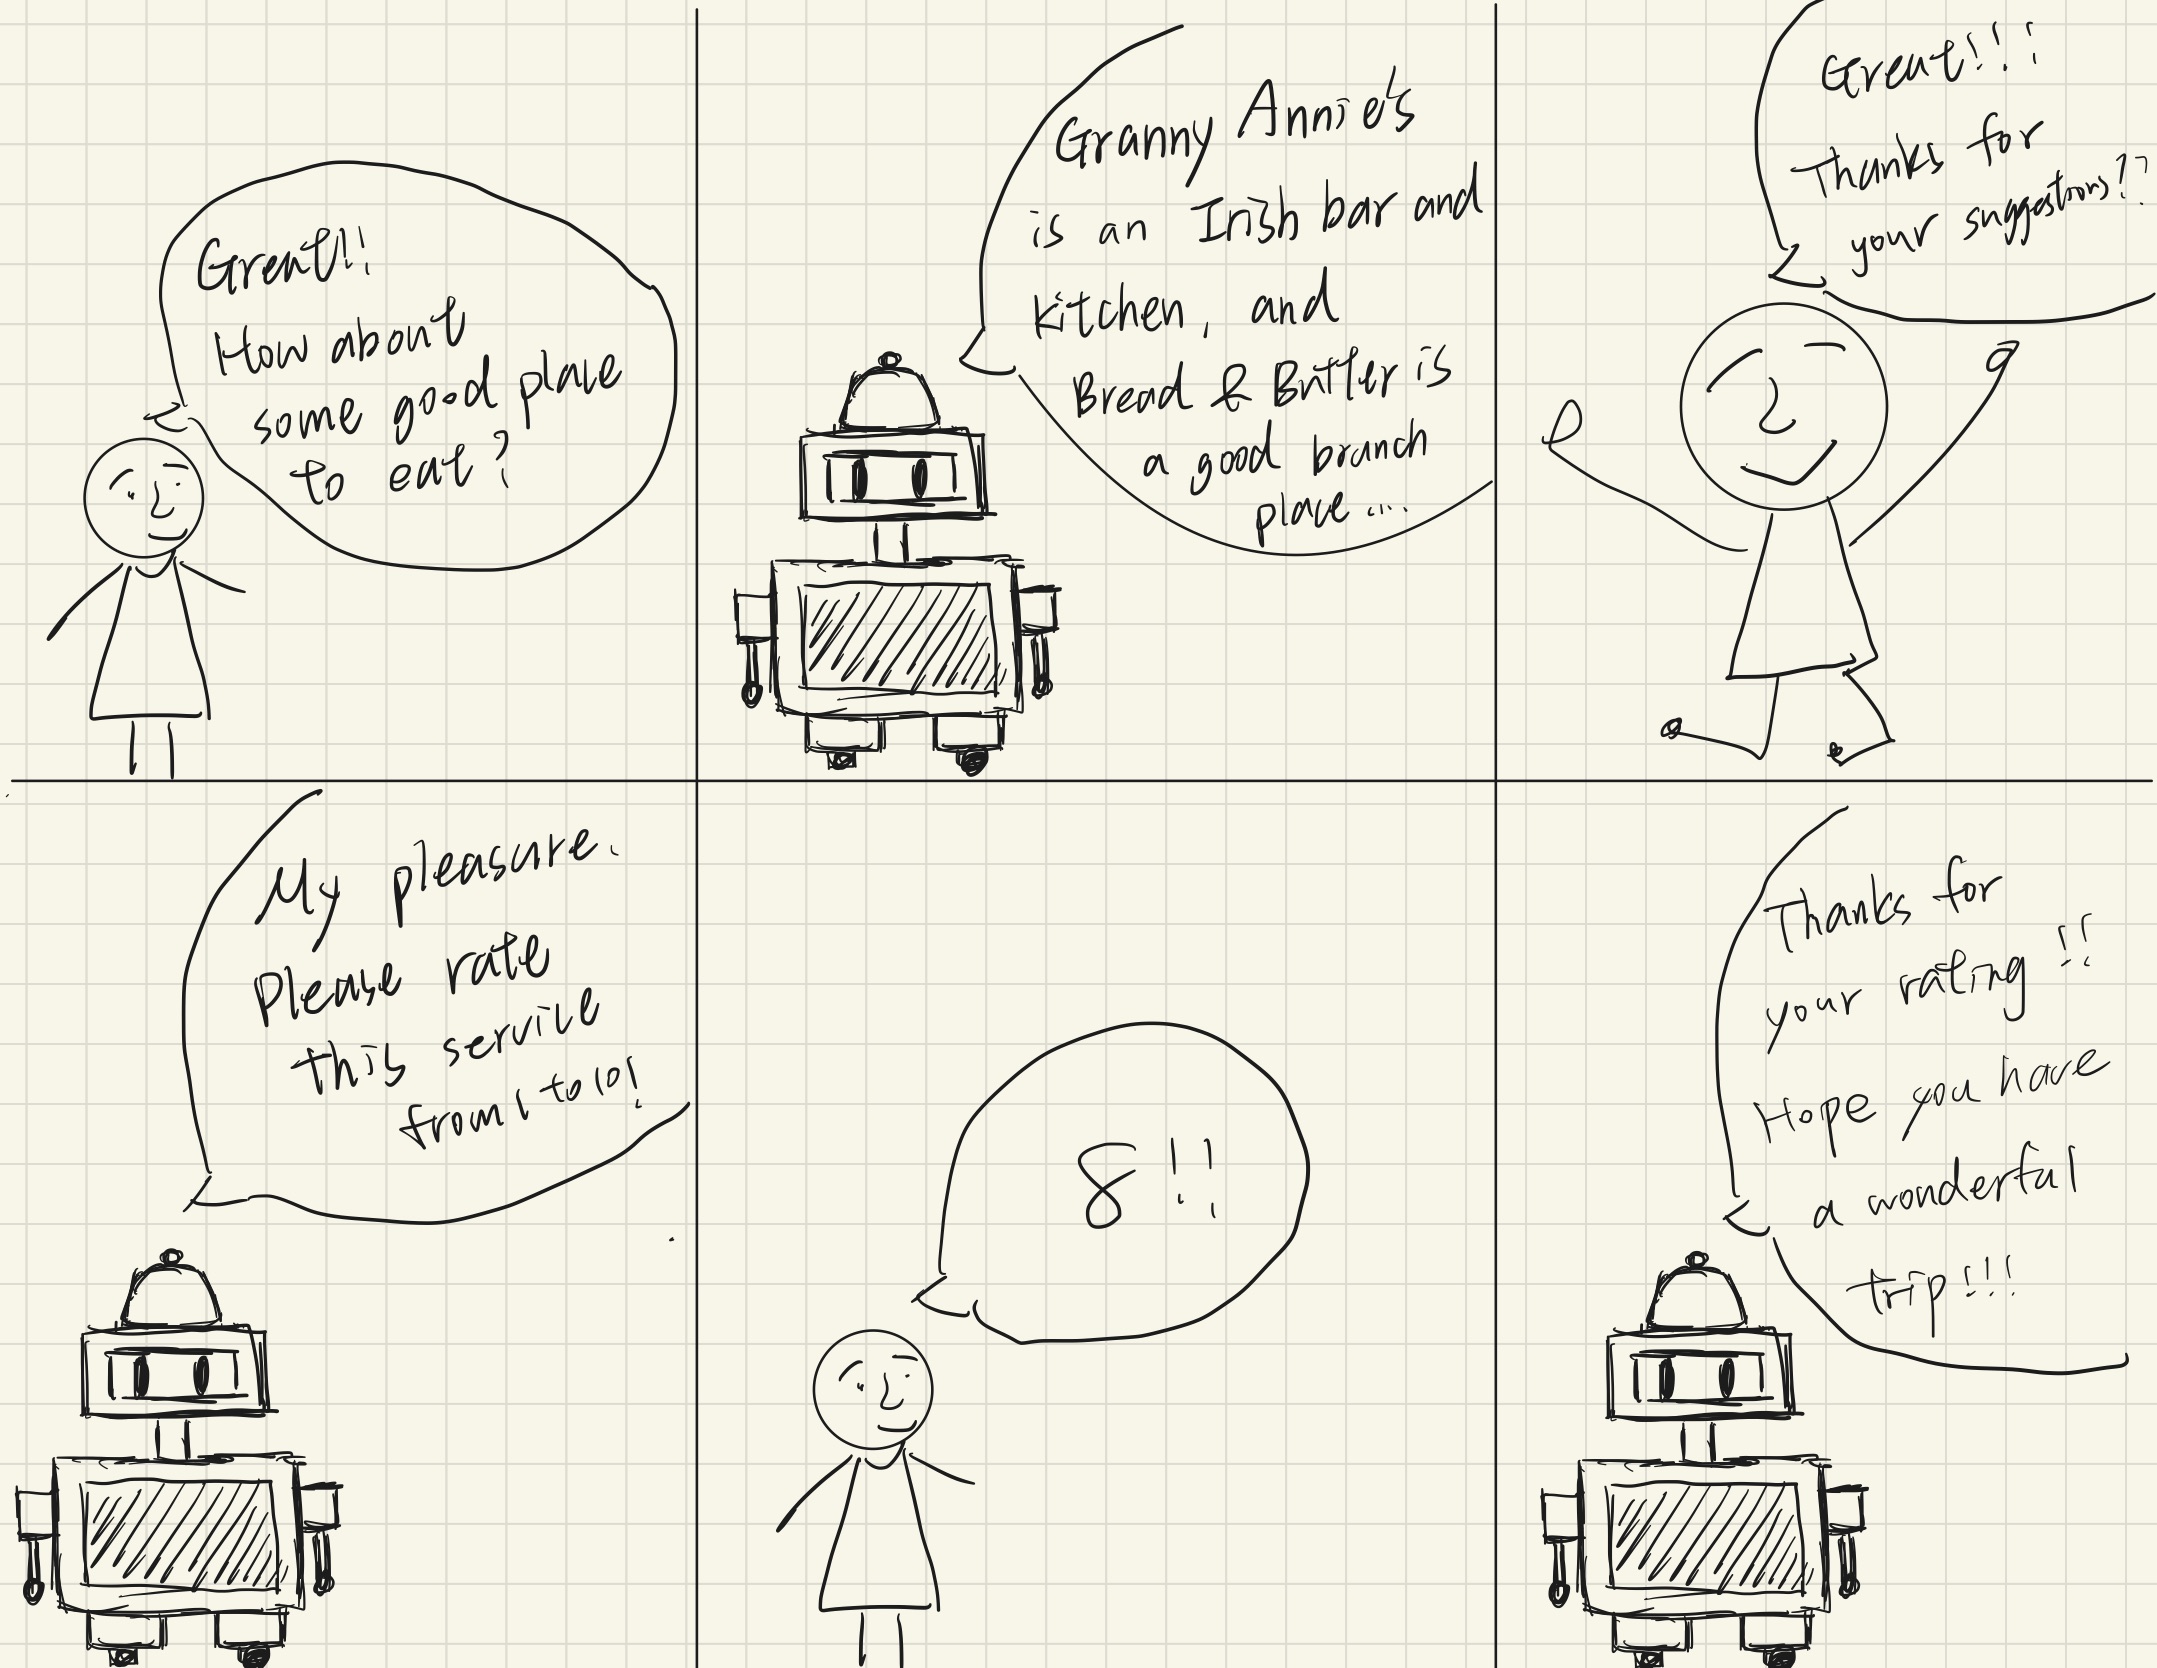 Great!!
How about
some good place
to eat?
Granny Annie's
is an Irish bar and
kitchen, and
Bread & Butter is
a good branch
place...
Great!!!
Thanks for
your suggestions??
My pleasure.
Please rate
this service
from 1 to 10!
8!!
Thanks for
your rating!!
Hope you have
a wonderful
trip!!!